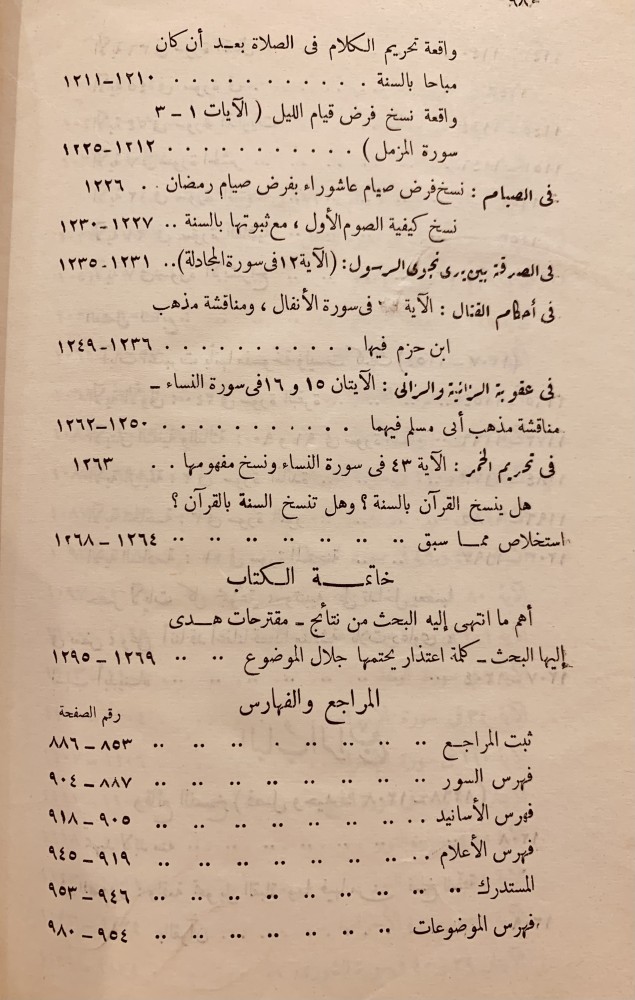 واقعة تحريم الكلام فى الصلاة بعد أن كان
مباحا بالسنة . . . . . . . . . . . ١٢١٠–١٢١١
واقعة نسخ فرض قيام الليل ( الآيات ١ – ٣
سورة المزمل ) . . . . . . . . . . . ١٢١٢–١٢٢٥
فى الصيام : نسخ فرض صيام عاشوراء بفرض صيام رمضان . . ١٢٢٦
نسخ كيفية الصوم الأول ، مع ثبوتها بالسنة .. ١٢٢٧–١٢٣٠
فى الصدقة بين يدى نجوى الرسول: (الآية ١٢ فى سورة المجادلة).. ١٢٣١–١٢٣٥
فى أحكام القتال : الآية فى سورة الأنفال ، ومناقشة مذهب
ابن حزم فيها . . . . . . . . . . . ١٢٣٦–١٢٤٩
فى عقوبة الزانية والزانى : الآيتان ١٥ و ١٦ فى سورة النساء –
مناقشة مذهب أبى مسلم فيهما . . . . . . . . . . ١٢٥٠–١٢٦٢
فى تحريم الخمر : الآية ٤٣ فى سورة النساء ونسخ مفهومها . . ١٢٦٣
هل ينسخ القرآن بالسنة ؟ وهل تنسخ السنة بالقرآن ؟
استخلاص مما سبق .. .. .. .. .. .. .. ١٢٦٤ – ١٢٦٨
خاتمة الكتاب
أهم ما انتهى إليه البحث من نتائج – مقترحات هدى
إليها البحث – كلمة اعتذار يحتمها جلال الموضوع .. .. ١٢٦٩ – ١٢٩٥
المراجع والفهارس
رقم الصفحة
ثبت المراجع .. .. .. .. . .. .. .. ٨٥٣ – ٨٨٦
فهرس السور .. .. .. .. .. .. .. .. ٨٨٧ – ٩٠٤
فهرس الأسانيد .. .. .. .. .. .. .. .. ٩٠٥ – ٩١٨
فهرس الأعلام .. .. .. .. .. .. .. .. ٩١٩ – ٩٤٥
المستدرك .. .. .. .. .. .. .. .. ٩٤٦ – ٩٥٣
فهرس الموضوعات .. .. .. .. .. .. .. ٩٥٤ – ٩٨٠